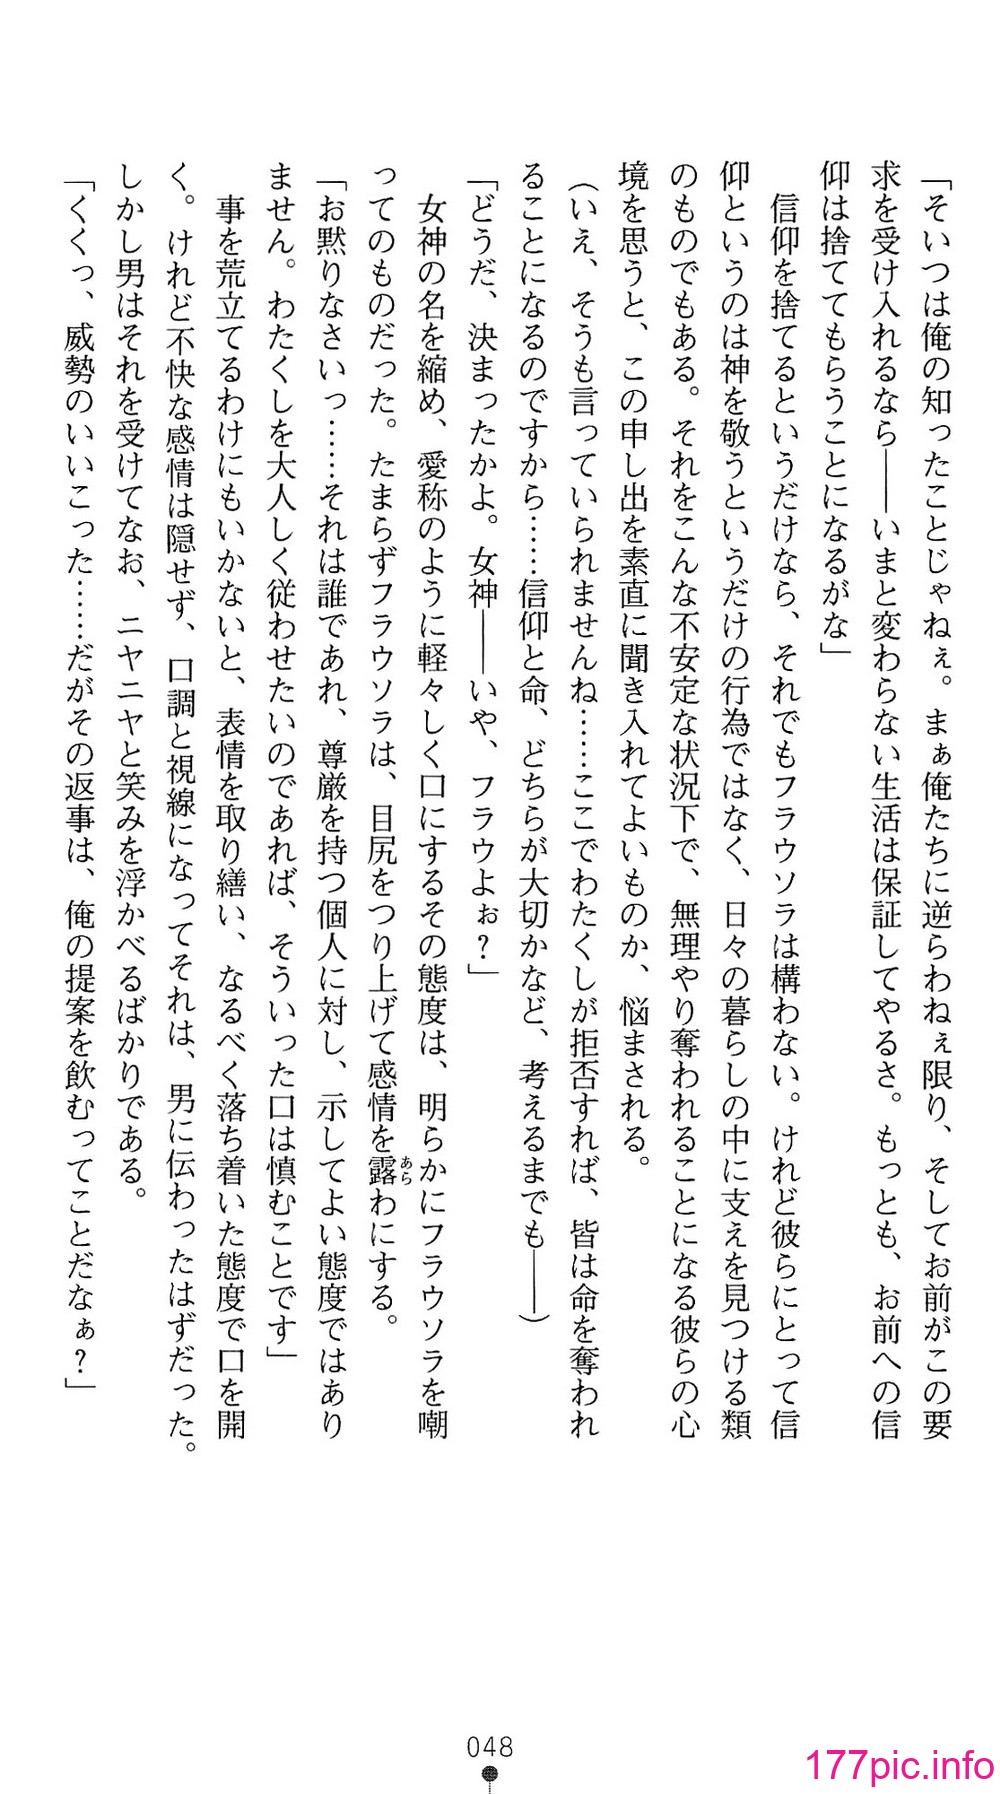 「そいつは俺の知ったことじゃねぇ。まぁ俺たちに逆らわねぇ限り、そしてお前がこの要
求を受け入れるなら――いまと変わらない生活は保証してやるさ。もっとも、お前への信
仰は捨ててもらうことになるがな」
信仰を捨てるというだけなら、それでもフラウソラは構わない。けれど彼らにとって信
仰というのは神を敬うというだけの行為ではなく、日々の暮らしの中に支えを見つける類
のものでもある。それをこんな不安定な状況下で、無理やり奪われることになる彼らの心
境を思うと、この申し出を素直に聞き入れてよいものか、悩まされる。
（いえ、そうも言っていられませんね……ここでわたくしが拒否すれば、皆は命を奪われ
ることになるのですから……信仰と命、どちらが大切かなど、考えるまでも――）
「どうだ、決まったかよ。女神――いや、フラウよぉ？」
女神の名を縮め、愛称のように軽々しく口にするその態度は、明らかにフラウソラを嘲
ってのものだった。たまらずフラウソラは、目尻をつり上げて感情を露あらわにする。
「お黙りなさいっ……それは誰であれ、尊厳を持つ個人に対し、示してよい態度ではあり
ません。わたくしを大人しく従わせたいのであれば、そういった口は慎むことです」
事を荒立てるわけにもいかないと、表情を取り繕い、なるべく落ち着いた態度で口を開
く。けれど不快な感情は隠せず、口調と視線になってそれは、男に伝わったはずだった。
しかし男はそれを受けてなお、ニヤニヤと笑みを浮かべるばかりである。
「くくっ、威勢のいいこった……だがその返事は、俺の提案を飲むってことだなぁ？」
048
177pic.info